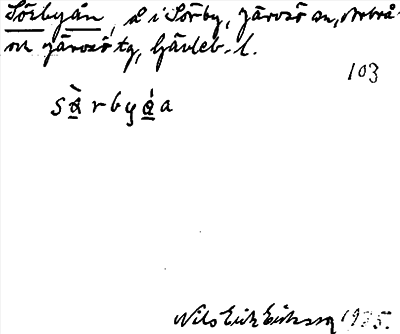 Sörbyån, å i Sörby, Järvsö sn, Arbrå
och Järvsö tg, Gävleb. l.
103
sö̀rbyǻa
Nils Erik Eriksson 1935.